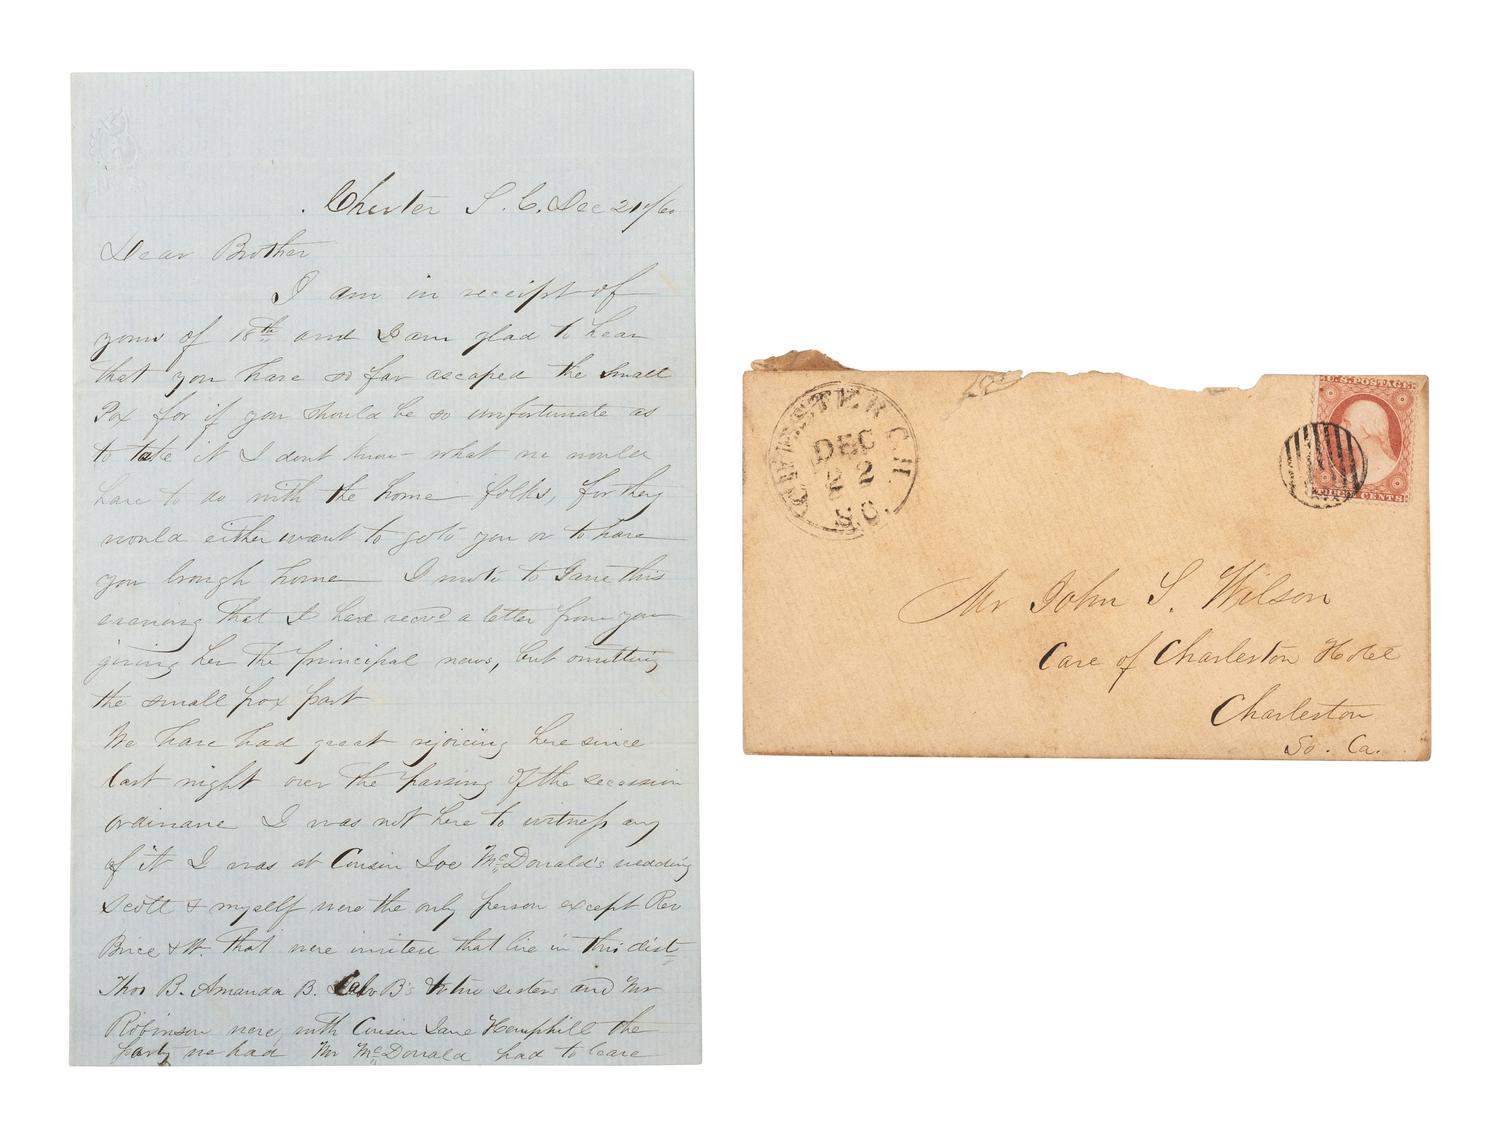 Chester S. C. Dec 21st/60
Dear Brother
I am in receipt of
yours of 18th and I am glad to hear
that you have so far ascaped the small
Pox for if you should be so unfortunate as
to take it I dont know what we would
have to do with the home folks, for they
would either want to go to you or to have
you brough home I wrote to Jane this
evening that I had recvd a letter from you
giving her the principal news, but omitting
the small pox part
We have had great rejoicing here since
last night over the passing of the secession
ordinance I was not here to witness any
of it I was at Cousin Joe McDonald's wedding
Scott & myself were the only person except Rev
Brice & W. that were invited that live in this dist
Thos B. Amanda B. B's two sisters and Mr
Robinson were, with Cousin Jane Hemphill the
party we had Mr McDonald had to leave
CHESTER C.H.
DEC
22
S.C.
U.S. POSTAGE
THREE CENTS
Mr John S. Wilson
Care of Charleston Hotel
Charleston
So. Ca.